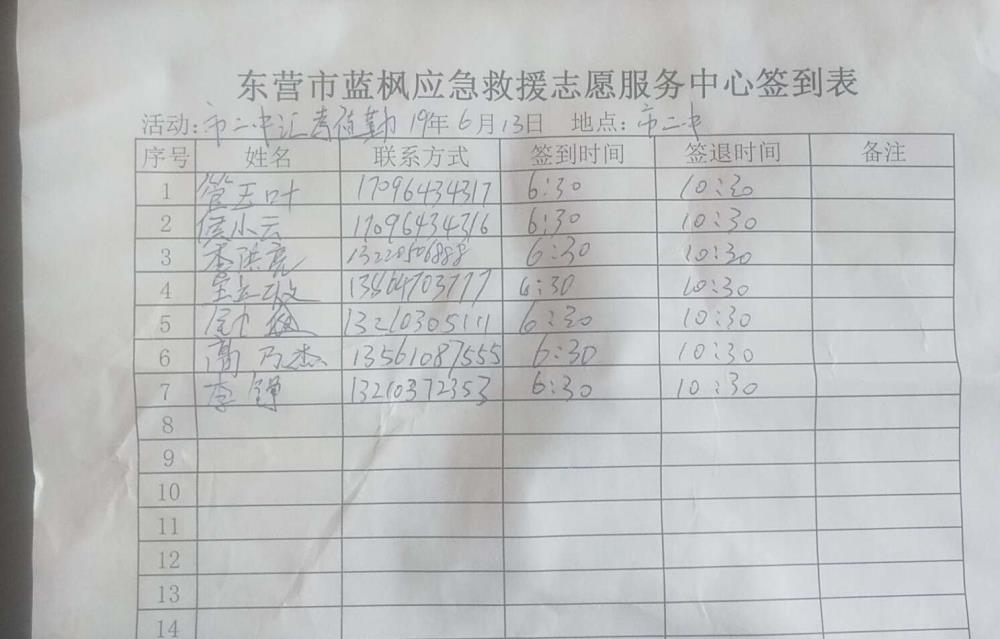 东营市蓝枫应急救援志愿服务中心签到表
活动:市二中汇考值勤 19年6月13日 地点:市二中
序号 姓名 联系方式 签到时间 签退时间 备注
1 管玉叶 17096434317 6:30 10:30
2 侯小云 17096434316 6:30 10:30
3 李洪亮 13220506888 6:30 10:30
4 13864703777 6:30 10:30
5 13210305111 6:30 10:30
6 高乃杰 13561087555 6:30 10:30
7 李铮 13210372353 6:30 10:30
8
9
10
11
12
13
14